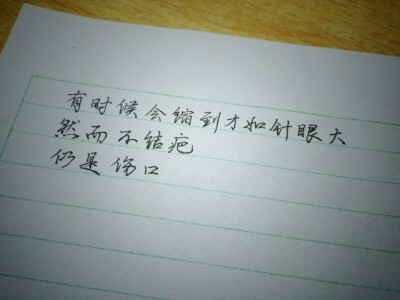 有时候会缩到才如针眼大
然而不结疤
仍是伤口